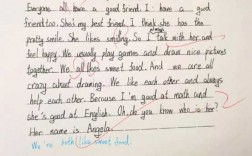 Everyone all have a good friend. I have a good
friend too. She's my best friend. I think she has the
pretty smile. She likes smiling. So I talk with her and
feel happy. We usually play games and draw nice pictures
together. We all likes sweet food. And we are all
crazy about drawing. We like each other and always
help each other. Because I'm good at math and
she's good at English. Oh, do you know who is her?
Her name is Angela.
We're both like sweet food.